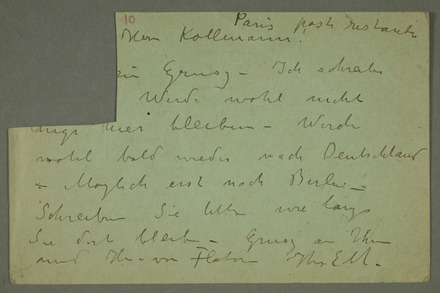 10
Paris poste restante
Herr Kollmann.
ein Gruss – Ich schreibe
Werde wohl nicht
lange hier bleiben – Werde
wohl bald wieder nach Deutschland
– Möglich erst nach Berlin –
Schreiben Sie bitte wie lange
Sie dort bleiben – Gruss an Ihre
und Hr. von Flotow Ihr EM.